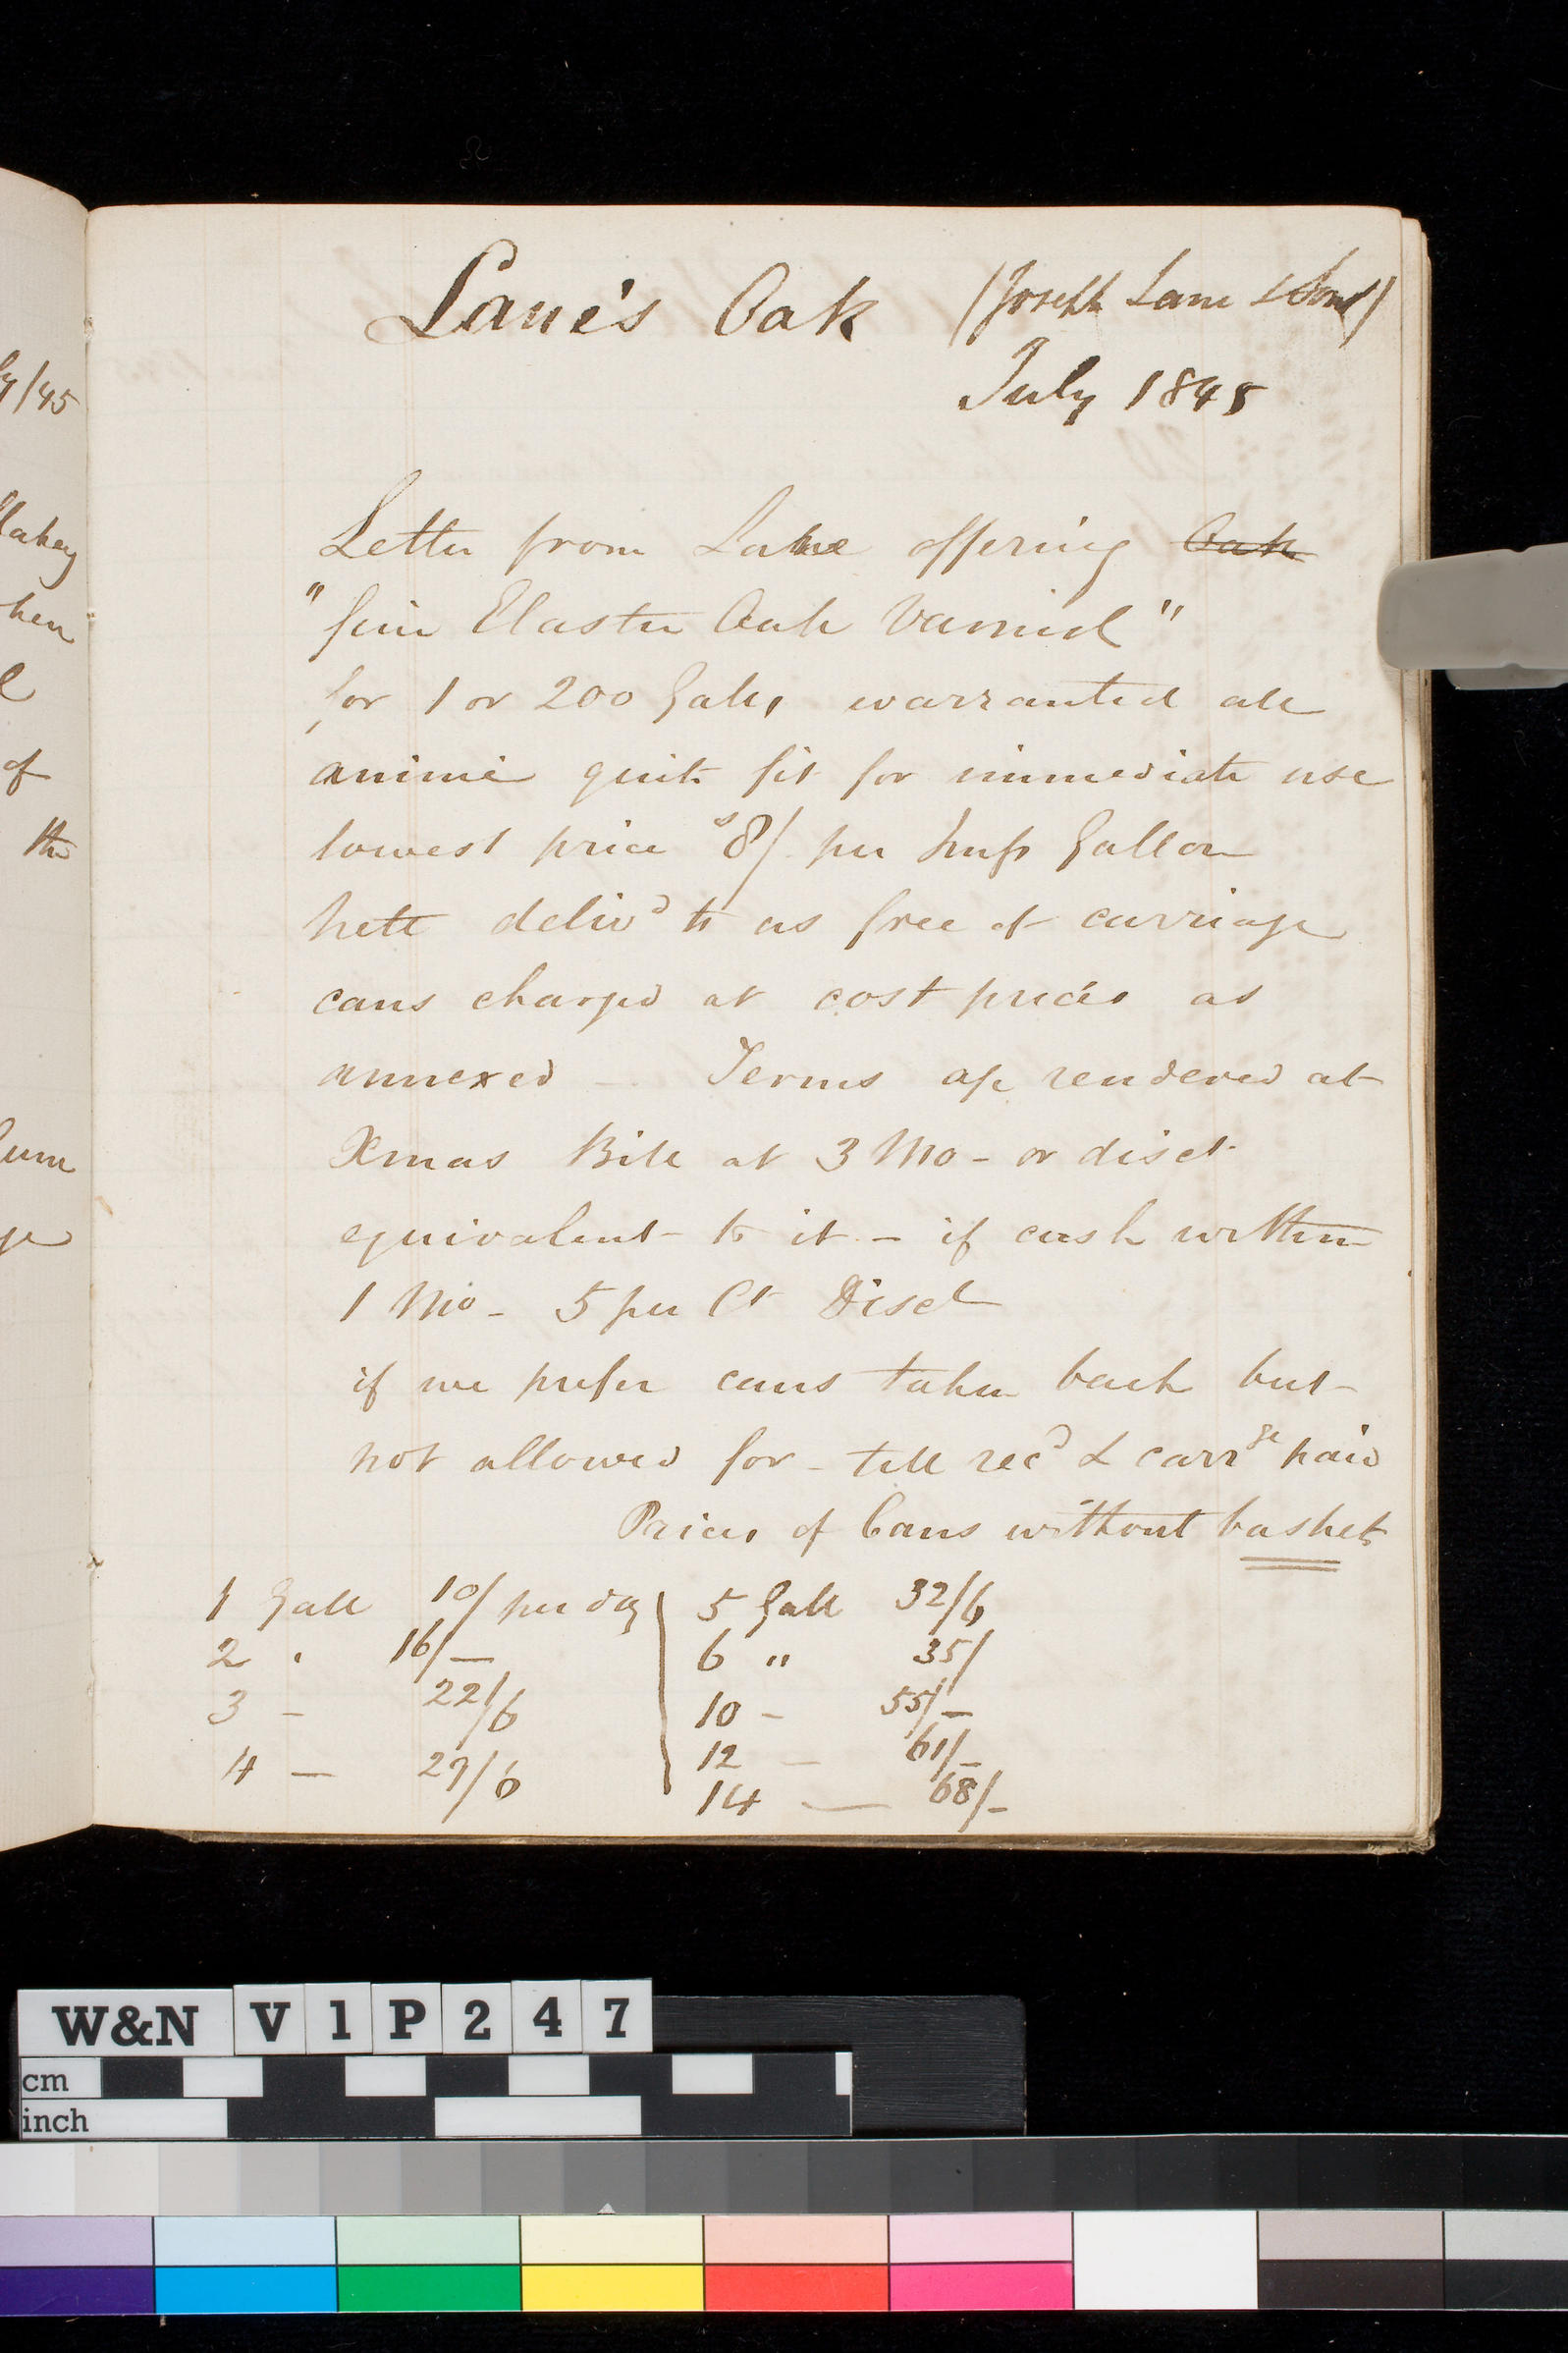 Lane's Oak (Joseph Lane & Sons)
July 1845
Letter from Lane offering Oak
"fine Elastic Oak Varnish"
for 1 or 200 Galls warranted all
animé quite fit for immediate use
lowest price s8/ per Imp Gallon
nett delivd to us free of carriage
cans charged at cost prices as
annexed – Terms a/c rendered at
Xmas Bill at 3 Mo – or disct
equivalent to it – if cash within
1 Mo – 5 per Ct Disct
if we prefer cans taken back but
not allowed for – till recd & carrge paid
Prices of Cans without baskets
1 Gall 10/ per doz 5 Gall 32/6
2 " 16/– 6 " 35/
3 – 22/6 10 – 55/–
4 – 27/6 12 – 61/–
14 – 68/–
y/45
flakey
when
of
the
W&N V 1 P 2 4 7
cm
inch